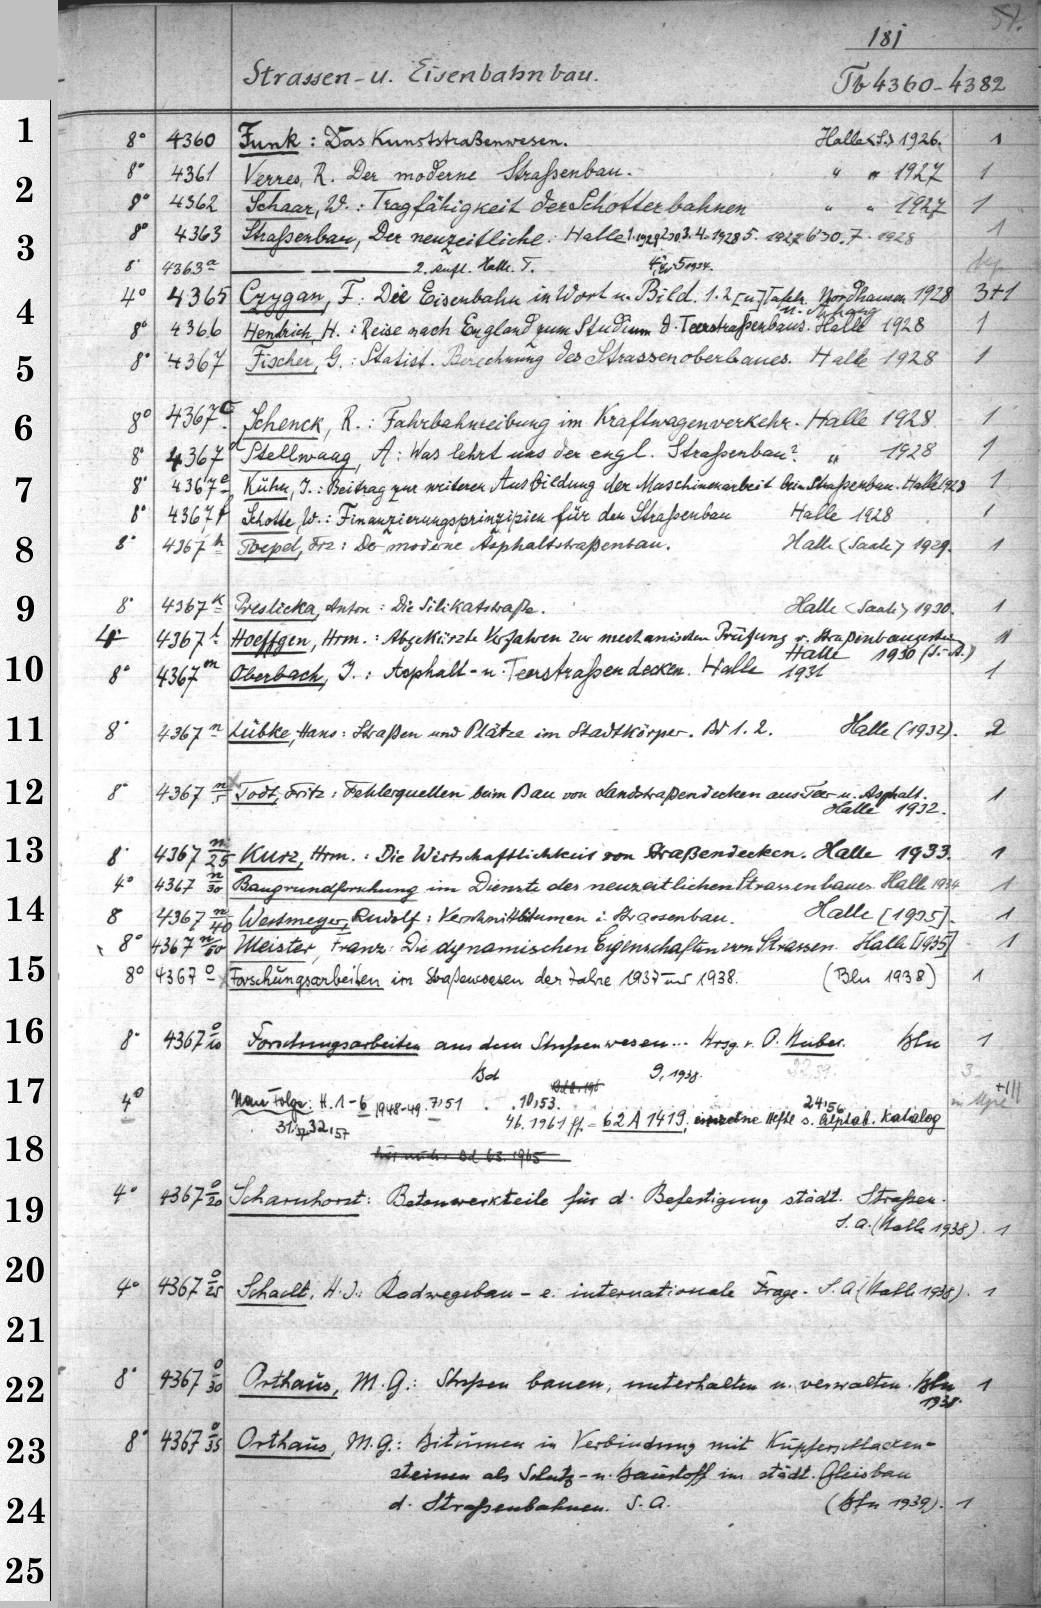 51.
181
Strassen- u. Eisenbahnbau. Tb 4360-4382
1
8° 4360 Funk : Das Kunststraßenwesen. Halle<S.> 1926. 1
2
8° 4361 Verres, R. Der moderne Straßenbau. " " 1927 1
8° 4362 Schaar, W.: Tragfähigkeit der Schotterbahnen " " 1927 1
3
8° 4363 Straßenbau, Der neuzeitliche. Halle 1928 1
8° 4363a 2. Aufl. Halle. T. 4. 5 1934.
4
4° 4365 Czygan, F: Die Eisenbahn in Wort u. Bild. 1.2 [u] Tafeln. Nordhausen 1928 3+1
u. Anhang
8° 4366 Hentrich, H.: Reise nach England zum Studium d. Teerstraßenbaus. Halle 1928 1
5
8° 4367 Fischer, G.: Statist. Berechnung des Strassenoberbaues. Halle 1928 1
6
8° 4367c Schenck, R.: Fahrbahnreibung im Kraftwagenverkehr. Halle 1928. 1
8° 4367d Stellwaag, A: Was lehrt uns der engl. Straßenbau? " 1928 1
7
8° 4367e Kühn, J.: Beitrag zur weiteren Ausbildung der Maschinenarbeit beim Straßenbau. Halle 1928 1
8° 4367f Schotte, W.: Finanzierungsprinzipien für den Straßenbau Halle 1928 1
8
8° 4367h Toepel, Frz: Der moderne Asphaltstraßenbau. Halle <Saale> 1929. 1
9
8° 4367k Preslicka, Anton: Die Silikatstraße. Halle <Saale> 1930. 1
4° 4367l Hoeffgen, Hrm.: Abgekürzte Verfahren zur mechanischen Prüfung v. Straßenbaugestein 1
Halle 1930 (S.-A.)
10
8° 4367m Oberbach, J.: Asphalt- u. Teerstraßendecken. Halle 1931 1
11
8° 4367n Lübke, Hans: Straßen und Plätze im Stadtkörper. Bd 1. 2. Halle (1932). 2
12
8° 4367 n/5 Todt, Fritz: Fehlerquellen beim Bau von Landstraßendecken aus Teer u. Asphalt. 1
Halle 1932.
13
8° 4367 n/25 Kurz, Hrm.: Die Wirtschaftlichkeit von Straßendecken. Halle 1933. 1
4° 4367 n/30 Baugrundforschung im Dienste des neuzeitlichen Strassenbaues. Halle 1934 1
14
8 4367 n/40 Westmeyer, Rudolf: Verschnittbitumen i. Strassenbau. Halle [1935]. 1
8° 4367 n/50 Meister, Franz: Die dynamischen Eigenschaften von Strassen. Halle [1935] 1
15
8° 4367 o Forschungsarbeiten im Straßenwesen der Jahre 1937 und 1938. (Bln 1938) 1
16
8° 4367 o/10 Forschungsarbeiten aus dem Straßenwesen... Hrsg. v. P. Huber. Bln 1
Bd 9, 1938.
17
4° Neue Folge: H. 1-6 1948-49. 7,51 . 10,53. 24,56
31,57 32,57 46. 1961 ff. = 62 A 1419, einzelne Hefte s. alphab. Katalog
18
19
4° 4367 o/20 Scharnhorst: Betonwerkteile für d. Befestigung städt. Straßen.
S.a. (Halle 1938). 1
20
4° 4367 o/25 Schacht, H.J.: Radwegebau - e. internationale Frage. S.A (Halle 1938). 1
21
22
8° 4367 o/30 Orthaus, M.G.: Straßen bauen, unterhalten u. verwalten. Bln 1
1938.
23
8° 4367 o/35 Orthaus, M.G.: Bitumen in Verbindung mit Kupferschlacken-
steinen als Schutz- u. Baustoff im städt. Gleisbau
24
d. Straßenbahnen. S.A. (Bln 1939). 1
25